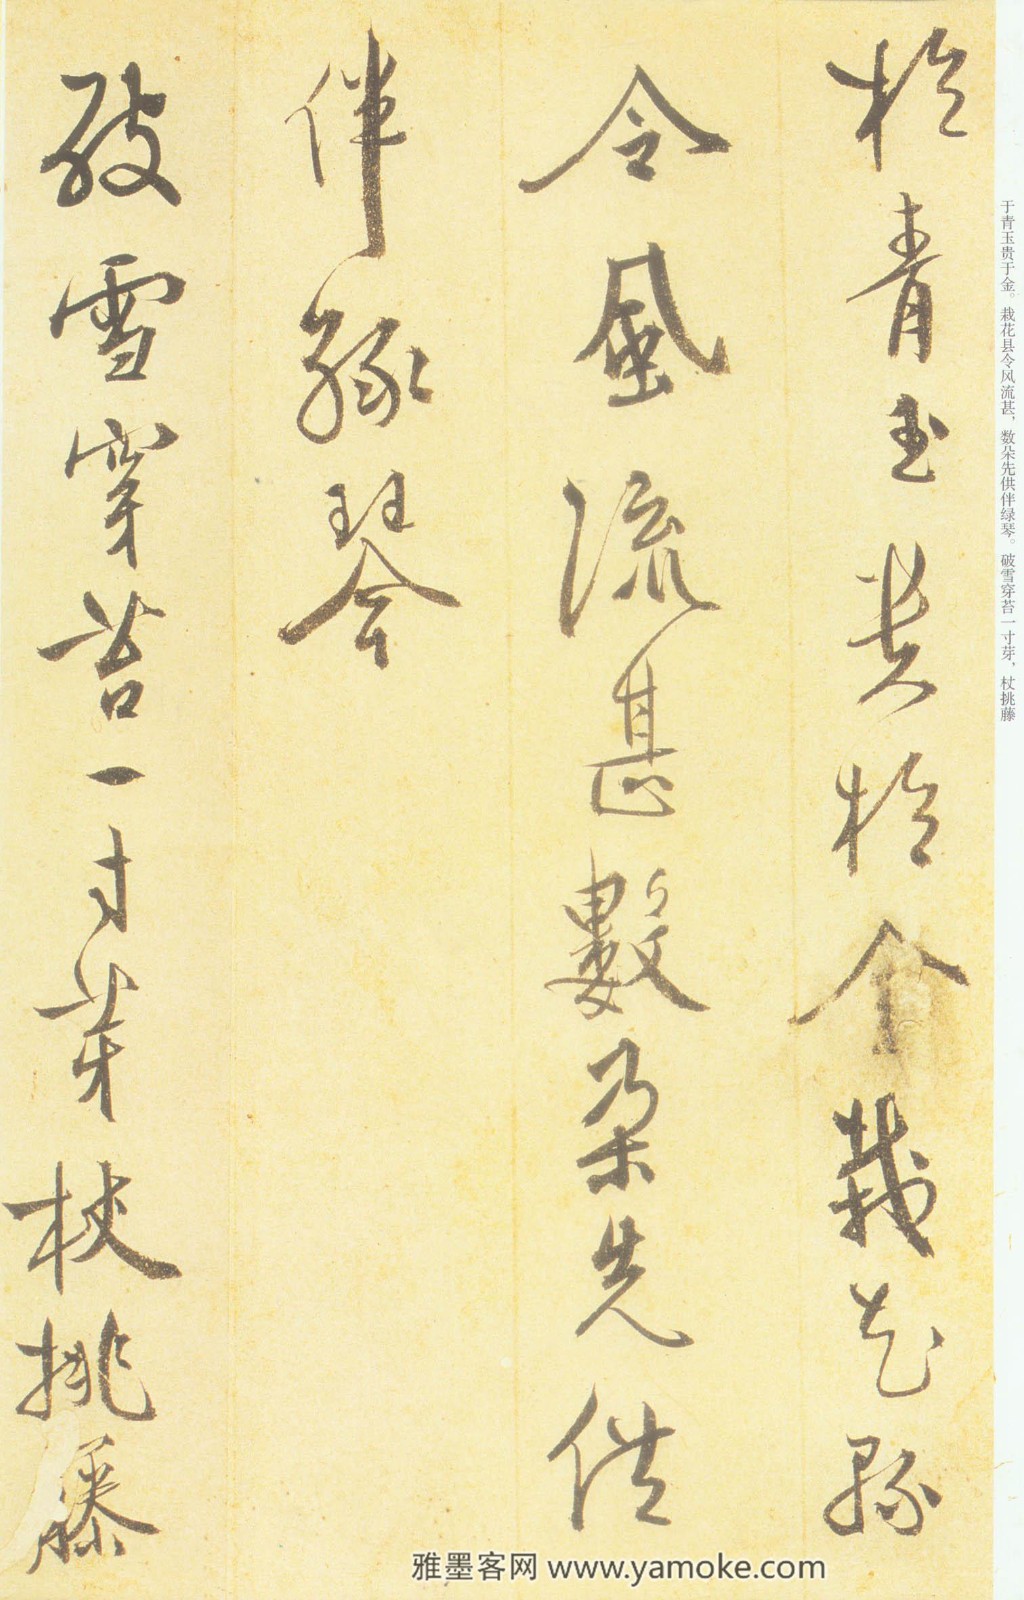 於青玉贵於金栽花縣
令風流甚數朶先供
伴綠琴
破雪穿苔一寸芽杖挑藤
于青玉贵于金。栽花县令风流甚，数朵先供伴绿琴。破雪穿苔一寸芽，杖挑藤
雅墨客网 www.yamoke.com